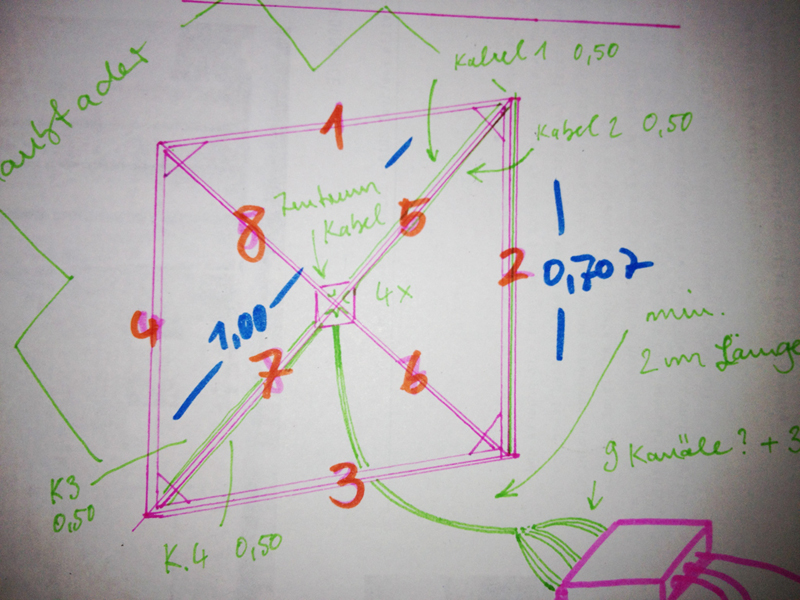 Kabel 1 0,50
Kabel 2 0,50
1
Zentrum
Kabel
8
5
2
0,707
4x
4
1,00
7
6
min.
2m Länge
3
9 Kanäle? + 3
K3
0,50
K.4 0,50